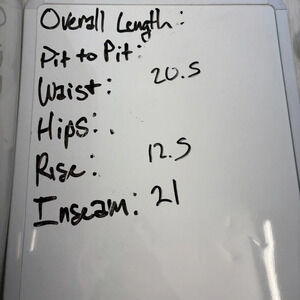 Overall Length:
Pit to Pit:
Waist: 20.5
Hips:
Rise: 12.5
Inseam: 21